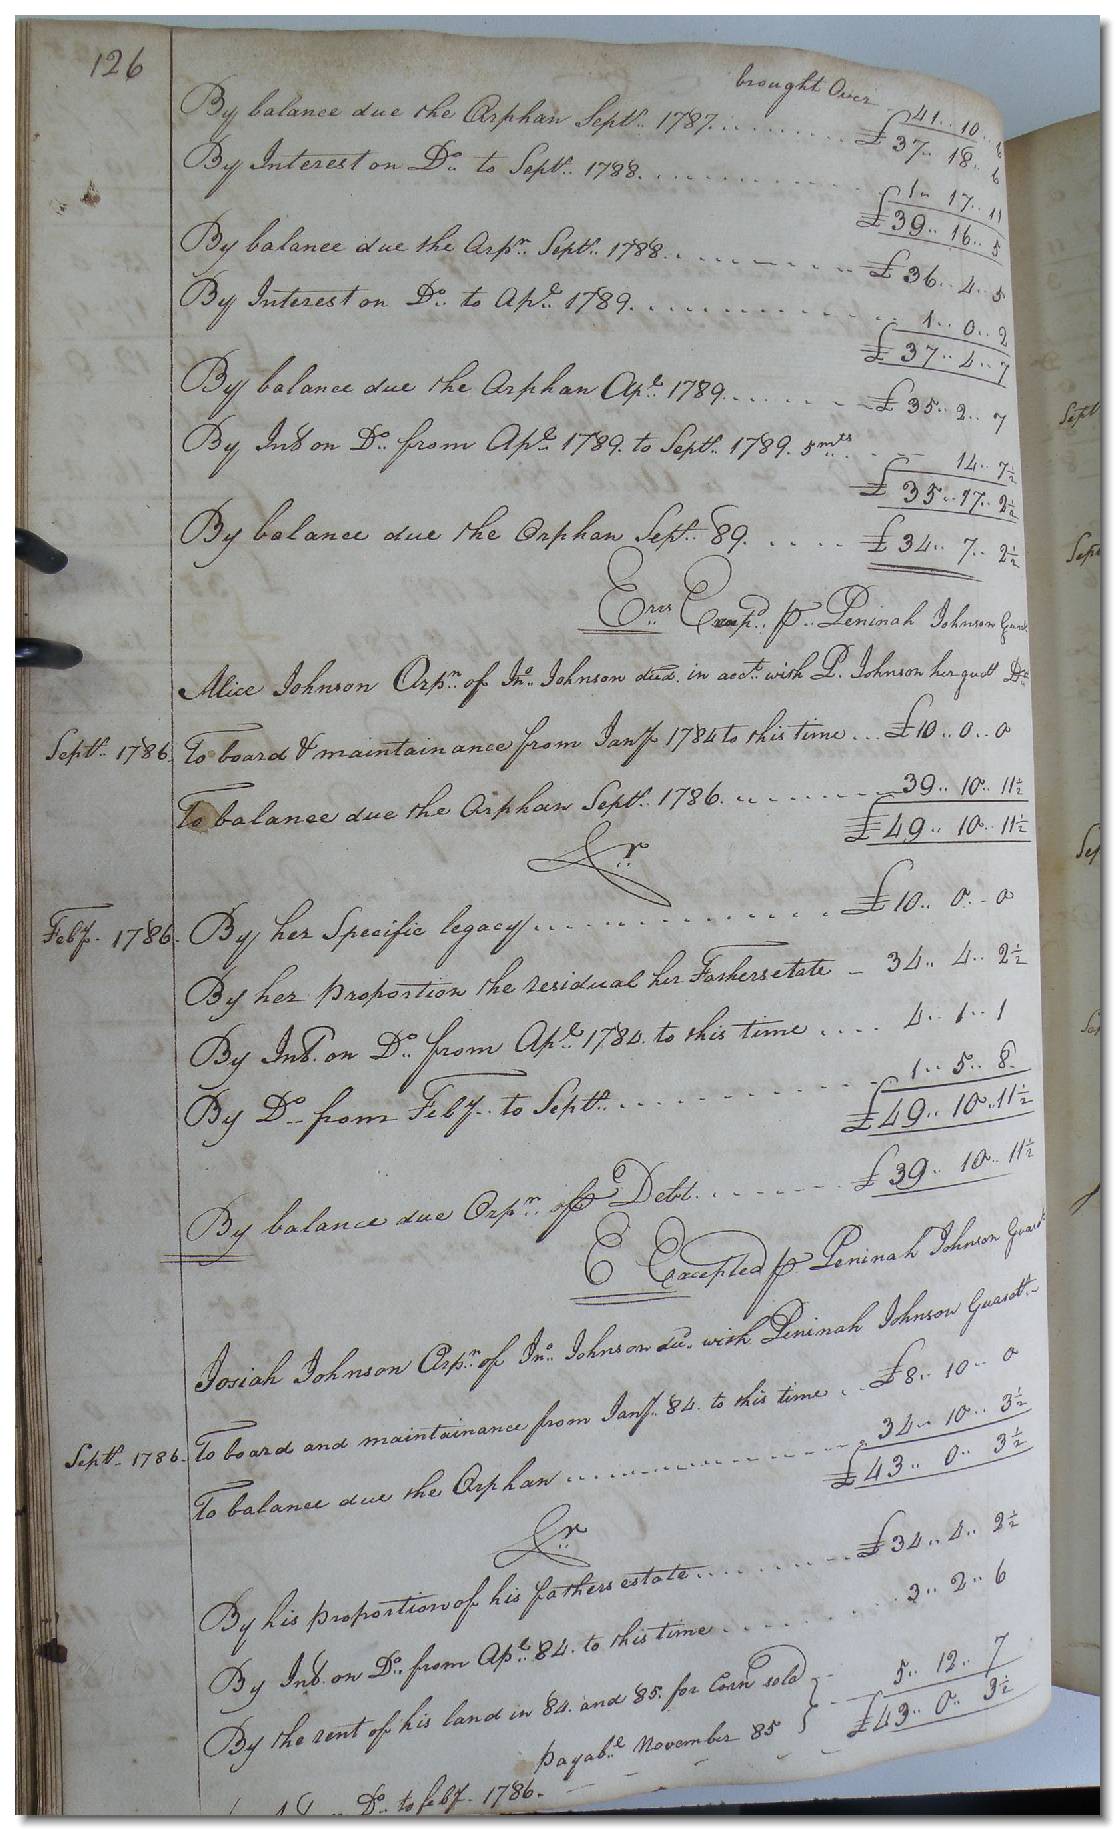 126
brought Over 41.. 10.. 6
By balance due the Orphan Septr. 1787. £37.. 18.. 6
By Interest on Do. to Septr. 1788. 1.. 17.. 11
£39.. 16.. 5
By balance due the Orpn. Septr. 1788. £36.. 4.. 5
By Interest on Do. to Apl. 1789. 1.. 0.. 2
£37.. 4.. 7
By balance due the Orphan Apl. 1789. £35.. 2.. 7
By Int. on Do. from Apl. 1789. to Septr. 1789. 5mts. 14.. 7½
£35.. 17.. 2½
By balance due the Orphan Septr. 89. £34.. 7.. 2½
Errs Excepd. pr. Peninah Johnson Guard
Alice Johnson Orpn. of Jno. Johnson decd. in acct. with P. Johnson her guds Dr.
Septr. 1786. To board & maintainance from Jany 1784 to this time £10.. 0.. 0
To balance due the Orphan Septr. 1786. 39.. 10.. 11½
£49.. 10.. 11½
Cr.
Feby. 1786. By her Specific legacy £10.. 0.. 0
By her proportion the residual her Fathers etate 34.. 4.. 2½
By Int. on Do. from Apl. 1784. to this time 4.. 1.. 1
By Do. from Feby. to Septr. 1.. 5.. 8
£49.. 10.. 11½
By balance due Orpn. of Debt £39.. 10.. 11½
E Excepted pr Peninah Johnson Guard
Josiah Johnson Orpn. of Jno. Johnson dec. with Peninah Johnson Guardt.
Septr. 1786. To board and maintainance from Jany. 84. to this time £8.. 10.. 0
To balance due the Orphan 34.. 10.. 3½
£43.. 0.. 3½
Cr.
By his proportion of his fathers estate £34.. 4.. 2½
By Int. on Do. from Apl. 84. to this time 3.. 2.. 6
By the rent of his land in 84. and 85. for Corn sold } 5.. 12.. 7
payable November 85 £43.. 0.. 3½
Do. to feby. 1786.